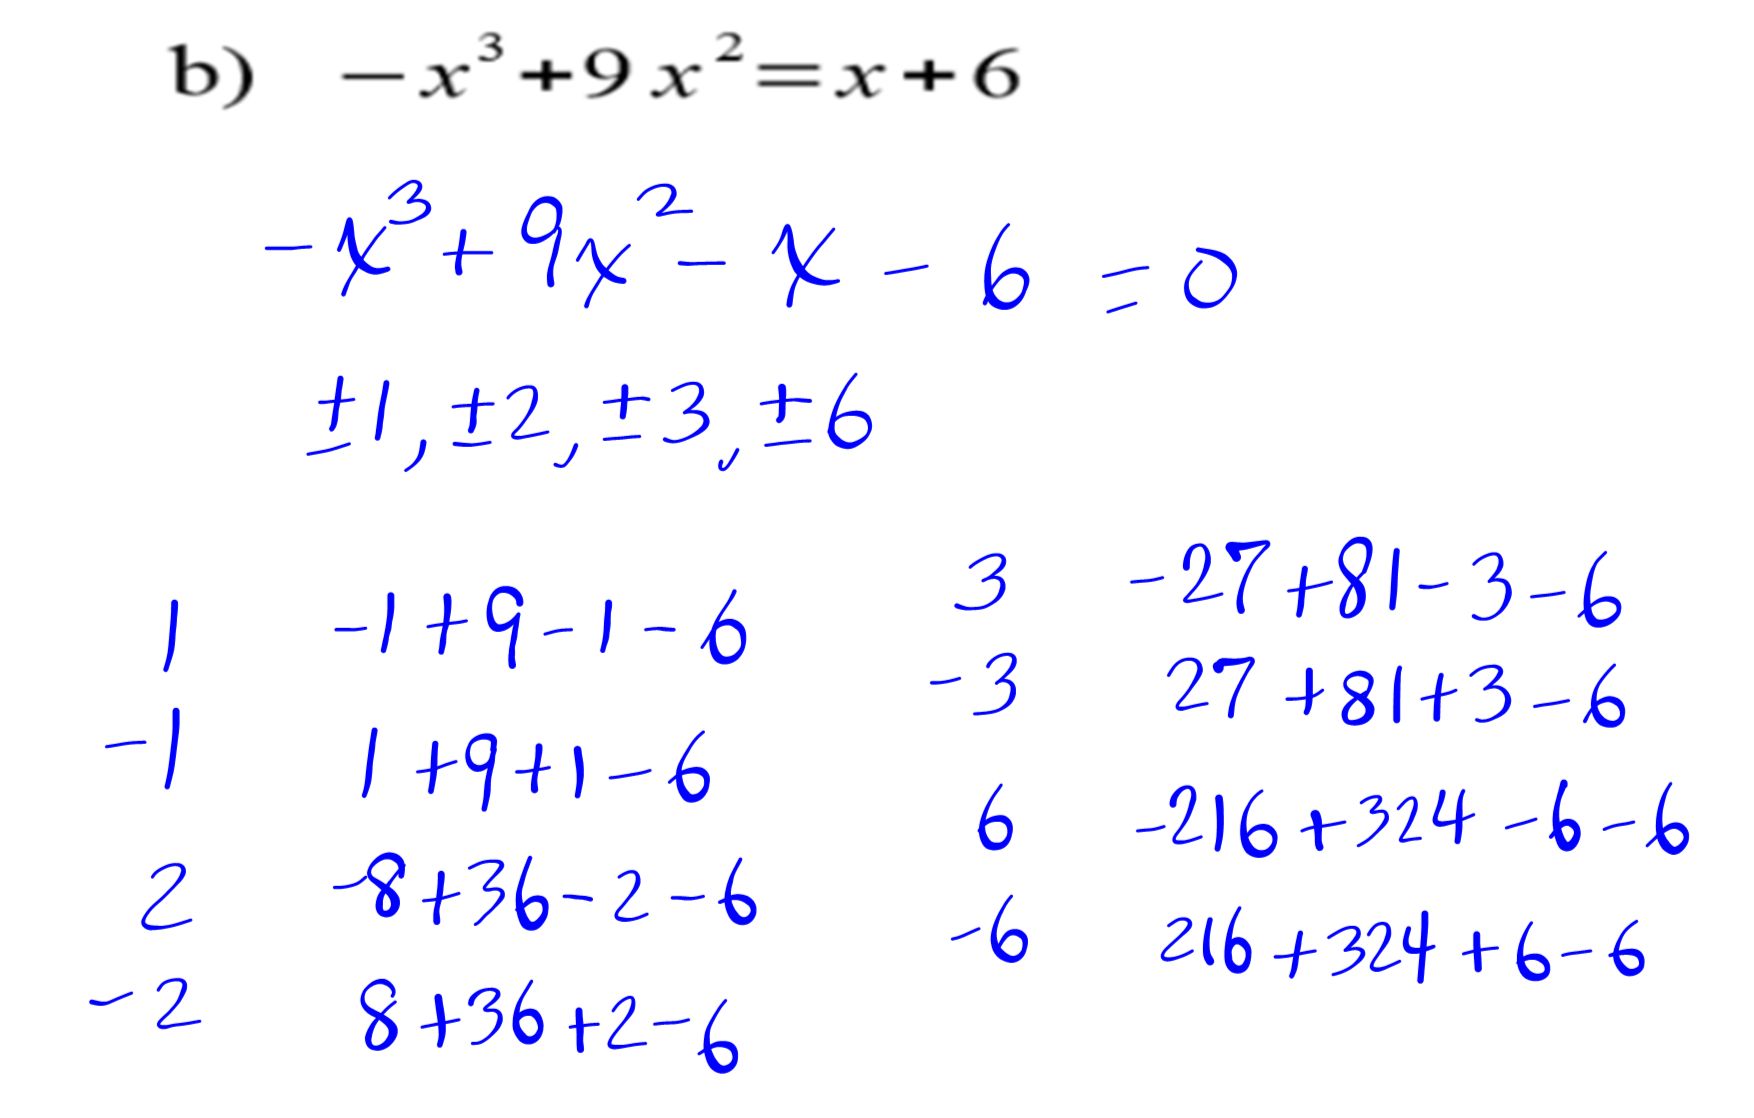 b) −x³+9x²=x+6
−x³+9x²−x−6=0
±1, ±2, ±3, ±6
1 −1+9−1−6
−1 1+9+1−6
2 −8+36−2−6
−2 8+36+2−6
3 −27+81−3−6
−3 27+81+3−6
6 −216+324−6−6
−6 216+324+6−6